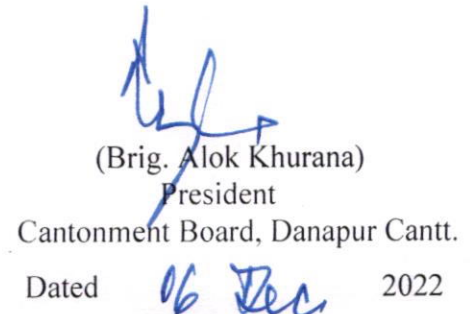 (Brig. Alok Khurana)
President
Cantonment Board, Danapur Cantt.
Dated 06 Dec 2022